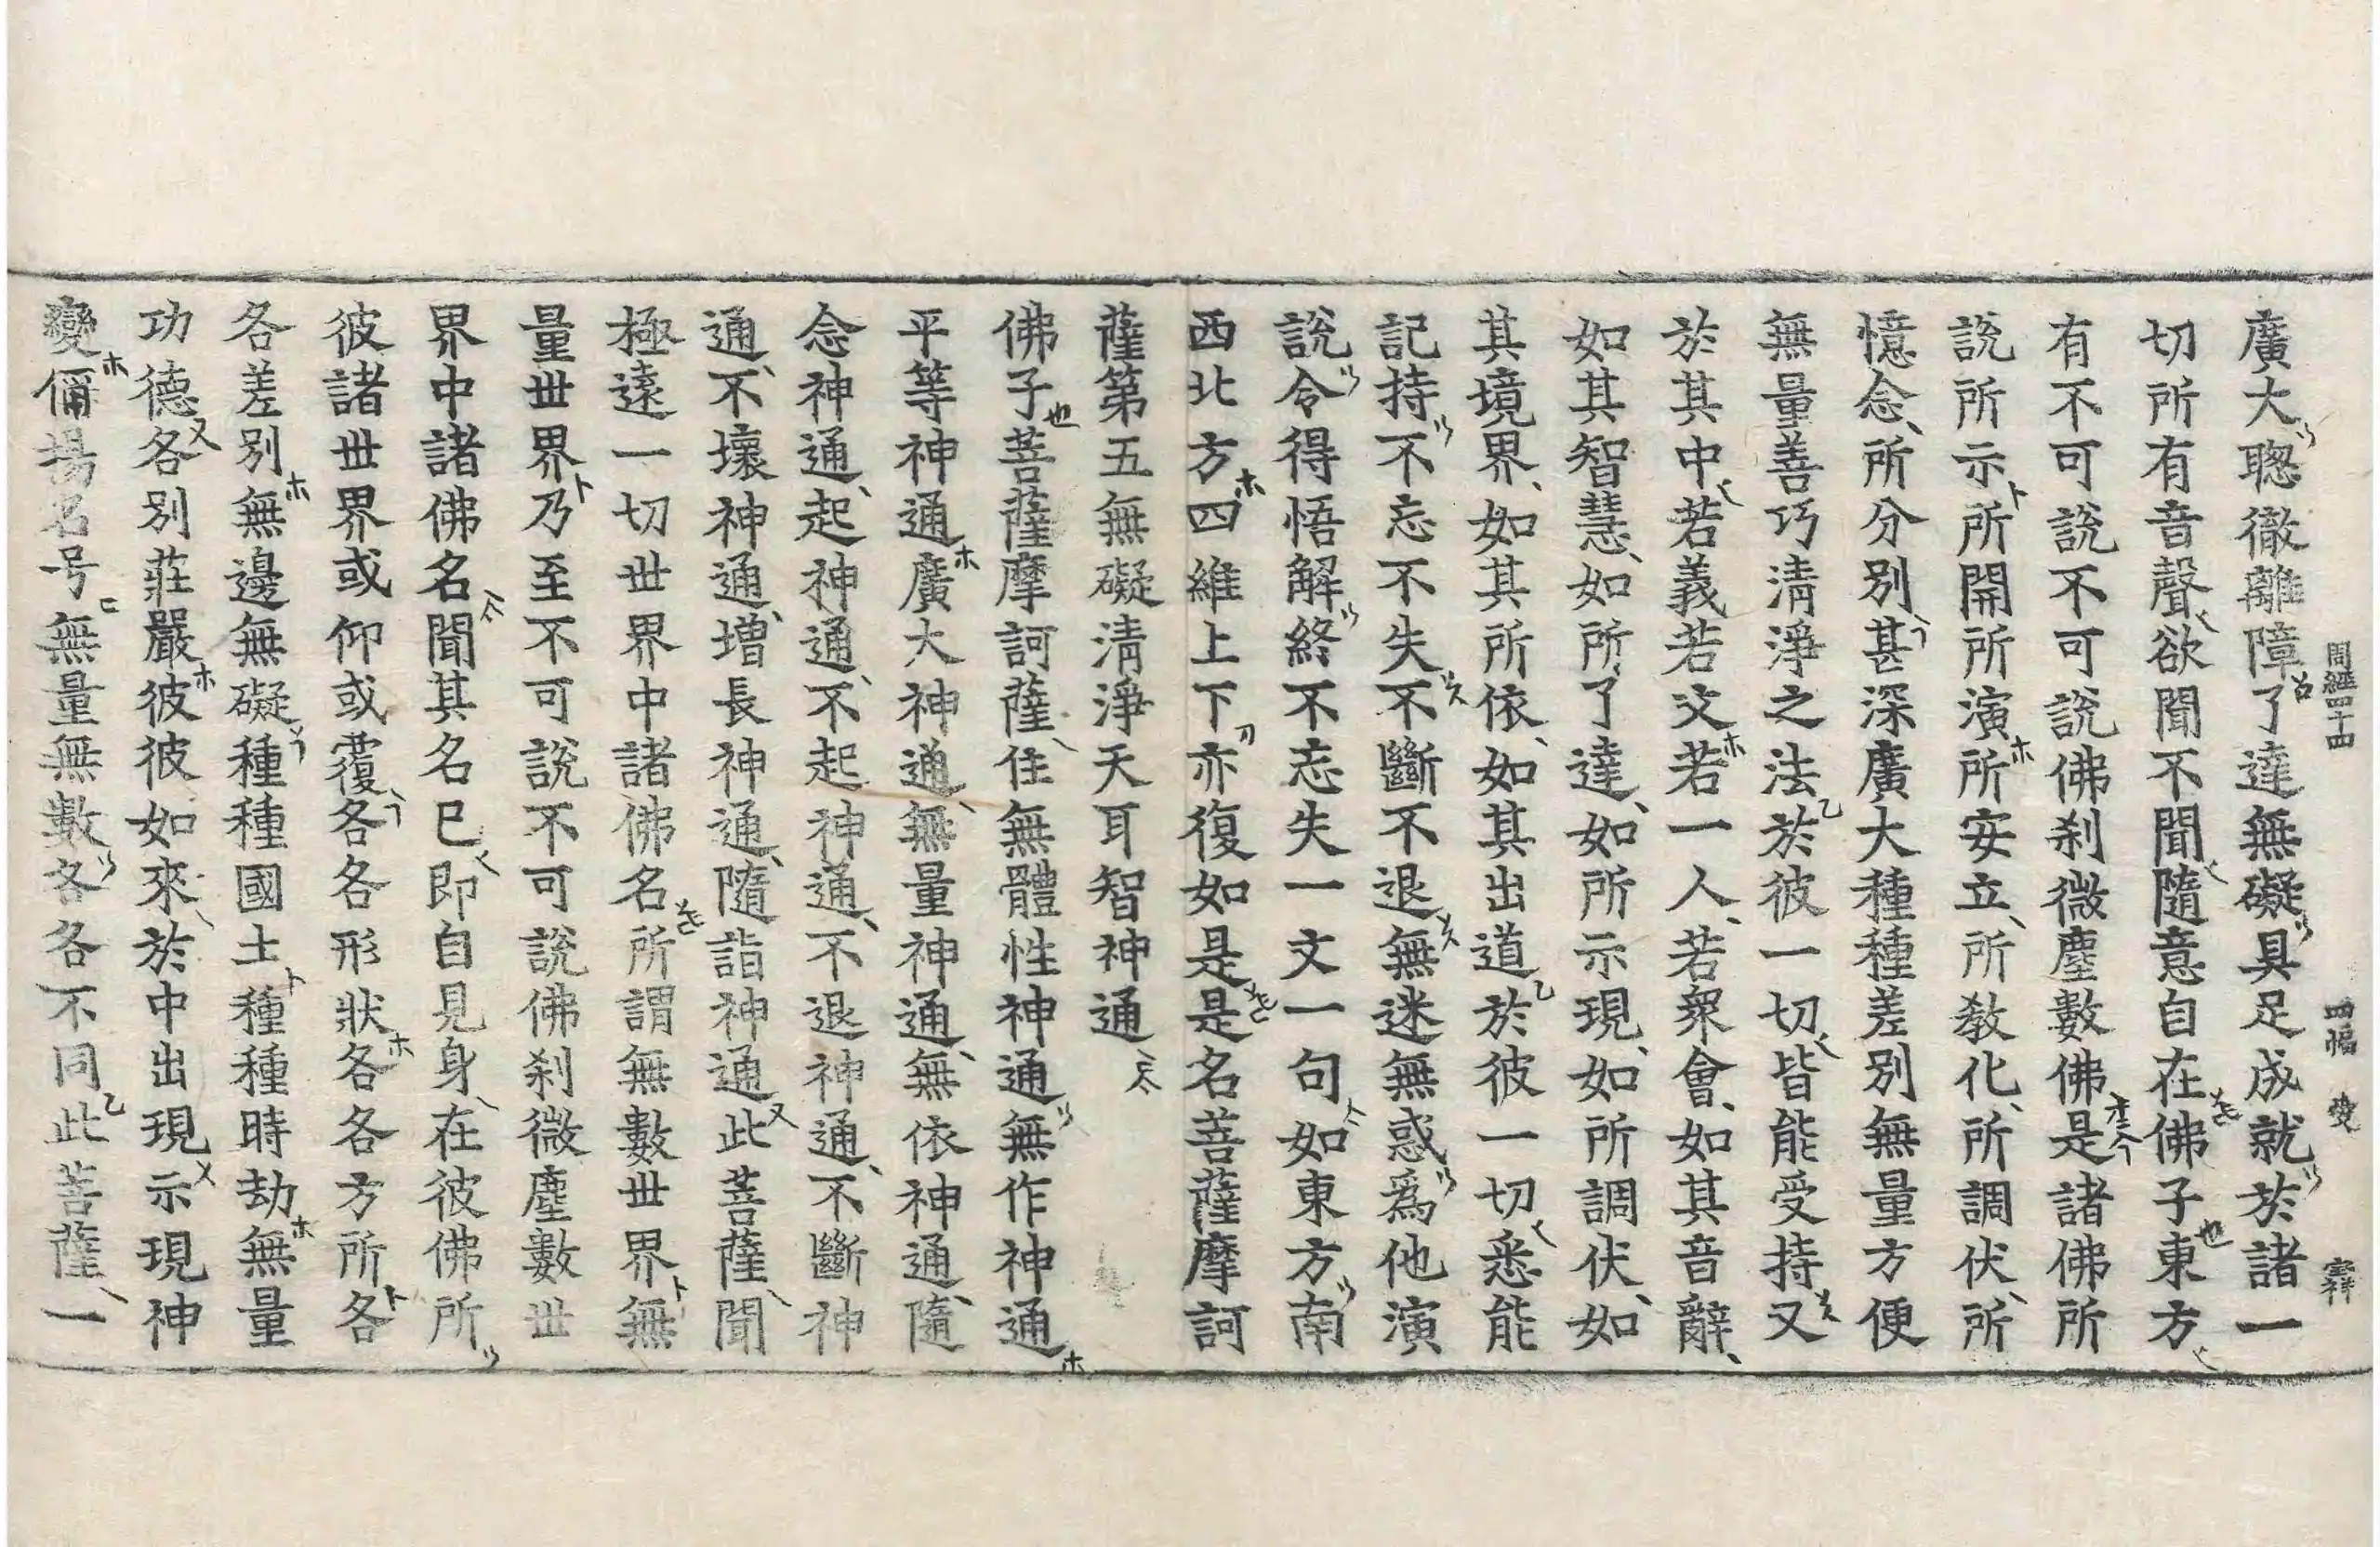 周經四十四 四幅 宝祥
廣大聰徹離障了達無礙具足成就於諸一
切所有音聲欲聞不聞隨意自在佛子也東方
有不可說不可說佛刹微塵數佛是諸佛所
說所示所開所演所安立所教化所調伏所
憶念所分別甚深廣大種種差別無量方便
無量善巧清淨之法於彼一切皆能受持又
於其中若義若文若一人若衆會如其音辭
如其智慧如所了達如所示現如所調伏如
其境界如其所依如其出道於彼一切悉能
記持不忘不失不斷不退無迷無惑爲他演
說令得悟解終不忘失一文一句如東方南
西北方四維上下亦復如是是名菩薩摩訶
薩第五無礙清淨天耳智神通
佛子也菩薩摩訶薩住無體性神通無作神通
平等神通廣大神通無量神通無依神通隨
念神通起神通不起神通不退神通不斷神
通不壞神通增長神通隨詣神通此菩薩聞
極遠一切世界中諸佛名所謂無數世界無
量世界乃至不可說不可說佛刹微塵數世
界中諸佛名聞其名已即自見身在彼佛所
彼諸世界或仰或覆各各形狀各各方所各
各差別無邊無礙種種國土種種時劫無量
功德各別莊嚴彼彼如來於中出現示現神
變偁揚名号無量無數各各不同此菩薩一